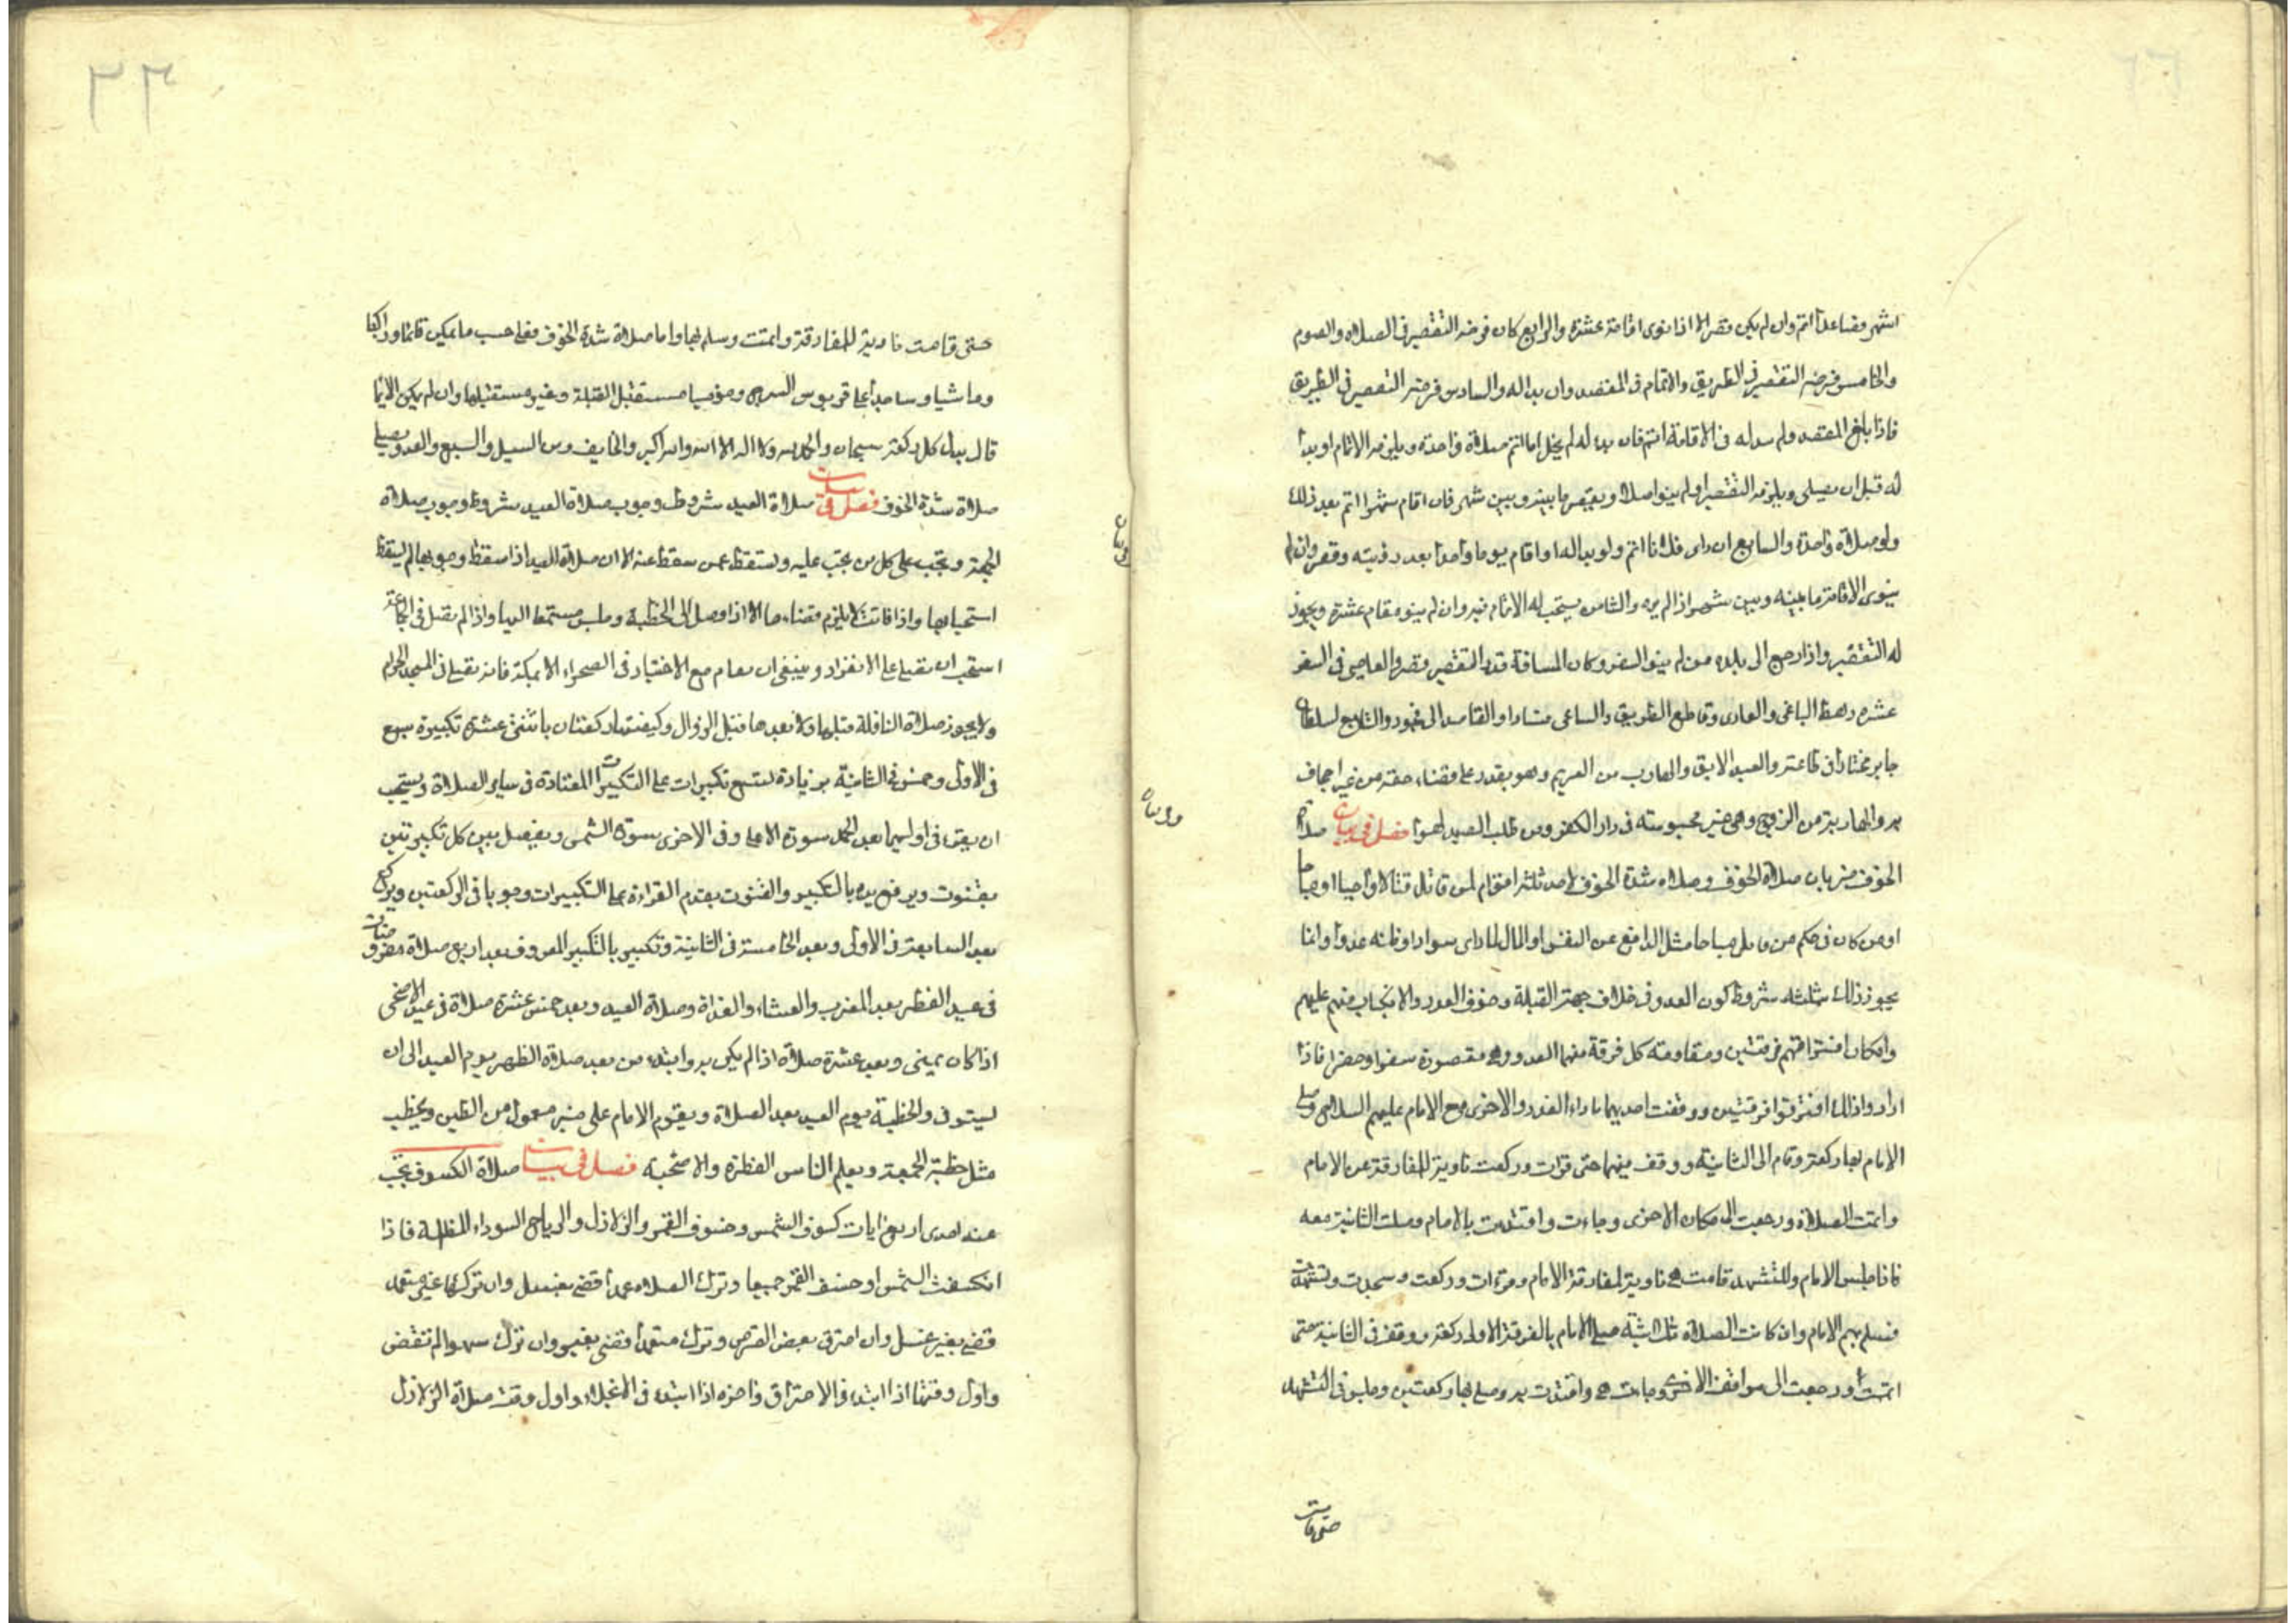 اشهر فصاعدا اتم وان لم يكن قصر الا اذا نوى اقامة عشرة والرابع كان فرضه التقصير فى الصلاة والصوم
والخامس فرضه التقصير فى الطريق والاتمام فى المقصد وان بدا له والسادس فرضه التقصير فى الطريق
فاذا بلغ المقصد ولم بدا له فى الاقامة اتم فان بدا له لم يخل اما اتم صلاة واحدة ويلزمه الاتمام او بدا
له قبل ان يصلى ويلزمه التقصير او لم ينو اصلا ويقصر ما بينه وبين شهر فان اقام شهرا اتم بعد ذلك
ولو صلاة واحدة والسابع ان راى فلانا اتم ولو بدا له او اقام يوما واحدا بعد رؤيته وقصر وان لم
ينوى الاقامة ما بينه وبين شهر اذا لم يره والثامن يستحب له الاتمام فيه وان لم ينو مقام عشرة ويجوز
له التقصير واذا رجع الى بلده من لم ينو السفر وكان المسافة قدر التقصير قصر والعاصى فى السفر
عشرة رهط الباغى والعادى وقاطع الطريق والساعى فسادا والقاصد الى فجور والتابع لسلطان
جاير مختارا فى طاعته والعبد الابق والهارب من الغريم وهو يقدر على قضاء حقه من غير اجحاف
به والهاربة من الزوج وهى غير محبوسته فى دار الكفر ومن طلب الصيد لهوا فصل فى بيان صلاة
الخوف ضربان صلاة الخوف وصلاة شدة الخوف لاحد ثلثة اقوام لمن قاتل قتالا واجبا او مباحا
او من كان فى حكم من قاتل مباحا مثل الدافع عن النفس او المال لما راى سوادا وظنه عدوا وانما
يجوز ذلك بثلثة شروط كون العدو فى خلاف جهة القبلة وخوف العدو والانكباب منهم عليهم
وامكان افتراقهم فرقتين ومقاومته كل فرقة منهما العدو وهى مقصورة سفرا وحضرا فاذا
ارادوا ذلك افترقوا فرقتين ووقفت احديهما بازاء العدو والاخرى مع الامام عليهم السلاح وصلى
الامام بها ركعة وقام الى الثانية ووقف منهما حتى قرات وركعت ناوية للمفارقة عن الامام
واتمت الصلاة ورجعت الى مكان الاخرى وجاءت واقتدت بالامام وصلت الثانية معه
فاذا جلس الامام وللتشهد قامت هى ناوية لمفارقة الامام وقرات وركعت وسجدت وتشهدت
فسلم بهم الامام وان كانت الصلاة ثلاثية صلى الامام بالفرقة الاولى ركعة ووقف فى الثانية حتى
اتمت ورجعت الى موافقت الاخرى وجاءت هى واقتدت به وصلى بها ركعتين وجلس فى التشهد
حتى قامت
حتى قامت ناوية للمفارقة واتمت وسلم بها واما صلاة شدة الخوف فعلى حسب ما يمكن قائما وراكبا
وماشيا وساجدا على قربوس السرج ومؤميا مستقبل القبلة وغير مستقبلها وان لم يكن الايما
قال بدل كل ركعة سبحان والحمد لله ولا اله الا الله والله اكبر والخايف من السيل والسبع والعدو يصلى
صلاة شدة الخوف فصل فى بيان صلاة العيد شروط وجوب صلاة العيد شروط وجوب صلاة
الجمعة وتجب على كل من تجب عليه وتسقط عمن سقط عنه الا ان صلاة العيد اذا سقط وجوبها لم يسقط
استحبابها واذا فاتت لا يلزم قضاءها الا اذا وصل الى الخطبة وجلس مستمعا اليها واذا لم تقبل فى الجماعة
استحب ان تصلى على الانفراد وينبغى ان تقام مع الاختيار فى الصحراء الا بمكة فانه تصلى فى المسجد الحرام
ولا يجوز صلاة النافلة قبلها ولا بعدها قبل الزوال وكيفيتها ركعتان باثنتى عشرة تكبيرة سبع
فى الاولى وخمس فى الثانية بزيادة لتسع تكبيرات على التكبيرات المعتادة فى ساير الصلاة ويستحب
ان يقرا فى اوليهما بعد الحمد سورة الاعلى وفى الاخرى سورة الشمس ويفصل بين كل تكبيرتين
بقنوت ويرفع يده بالتكبير والقنوت يقدم القراءة على التكبيرات وجوبا فى الركعتين ويركع
بعد السابعة فى الاولى وبعد الخامسة فى الثانية وتكبير بالتكبير المعروف بعد اربع صلاة مفروضات
فى عيد الفطر بعد المغرب والعشاء والغداة وصلاة العيد وبعد خمس عشرة صلاة فى عيد الاضحى
اذا كان بمنى وبعد عشرة صلاة اذا لم يكن به وابتداء من بعد صلاة الظهر يوم العيد الى ان
يستوفى والخطبة يوم العيد بعد الصلاة ويقوم الامام على منبر معمول من الطين ويخطب
مثل خطبة الجمعة ويعلم الناس الفطرة والاضحية فصل فى بيان صلاة الكسوف تجب
عند احدى اربع ايات كسوف الشمس وخسوف القمر والزلازل والرياح السوداء المظلمة فاذا
انكسفت الشمس او خسف القمر جميعا وترك الصلاة عمدا قضى بغسل وان تركها غير متعمد
قضى بغير غسل وان احترق بعض القرص وترك متعمدا قضى بغيره وان ترك سهوا لم تقض
واول وقتها اذا ابتدء فى الاحتراق واخره اذا ابتدء فى الانجلاء واول وقت صلاة الزلازل